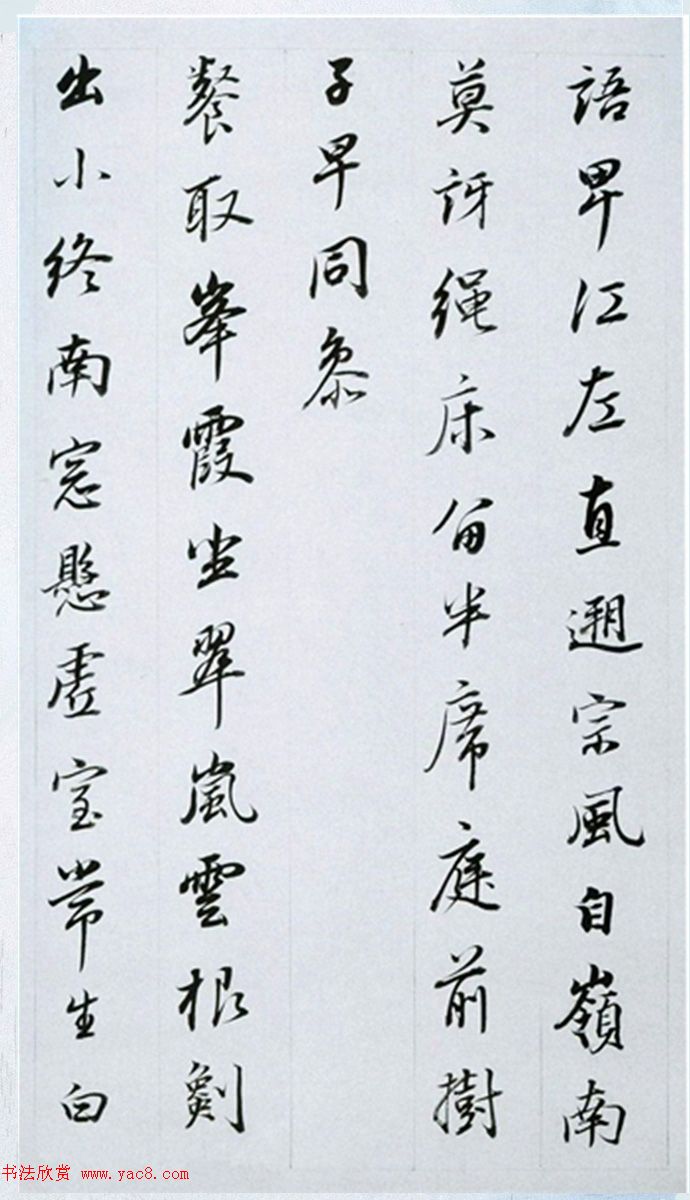 語卑江左直遡宗風自嶺南
莫訝绳床分半席庭前樹
子早同叅
餐取峯霞坐翠嵐雲根劖
出小終南窓懸虛室常生白
书法欣赏 www.yac8.com